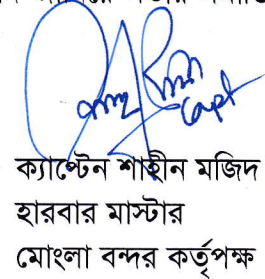 Capt
ক্যাপ্টেন শাহীন মজিদ
হারবার মাস্টার
মোংলা বন্দর কর্তৃপক্ষ